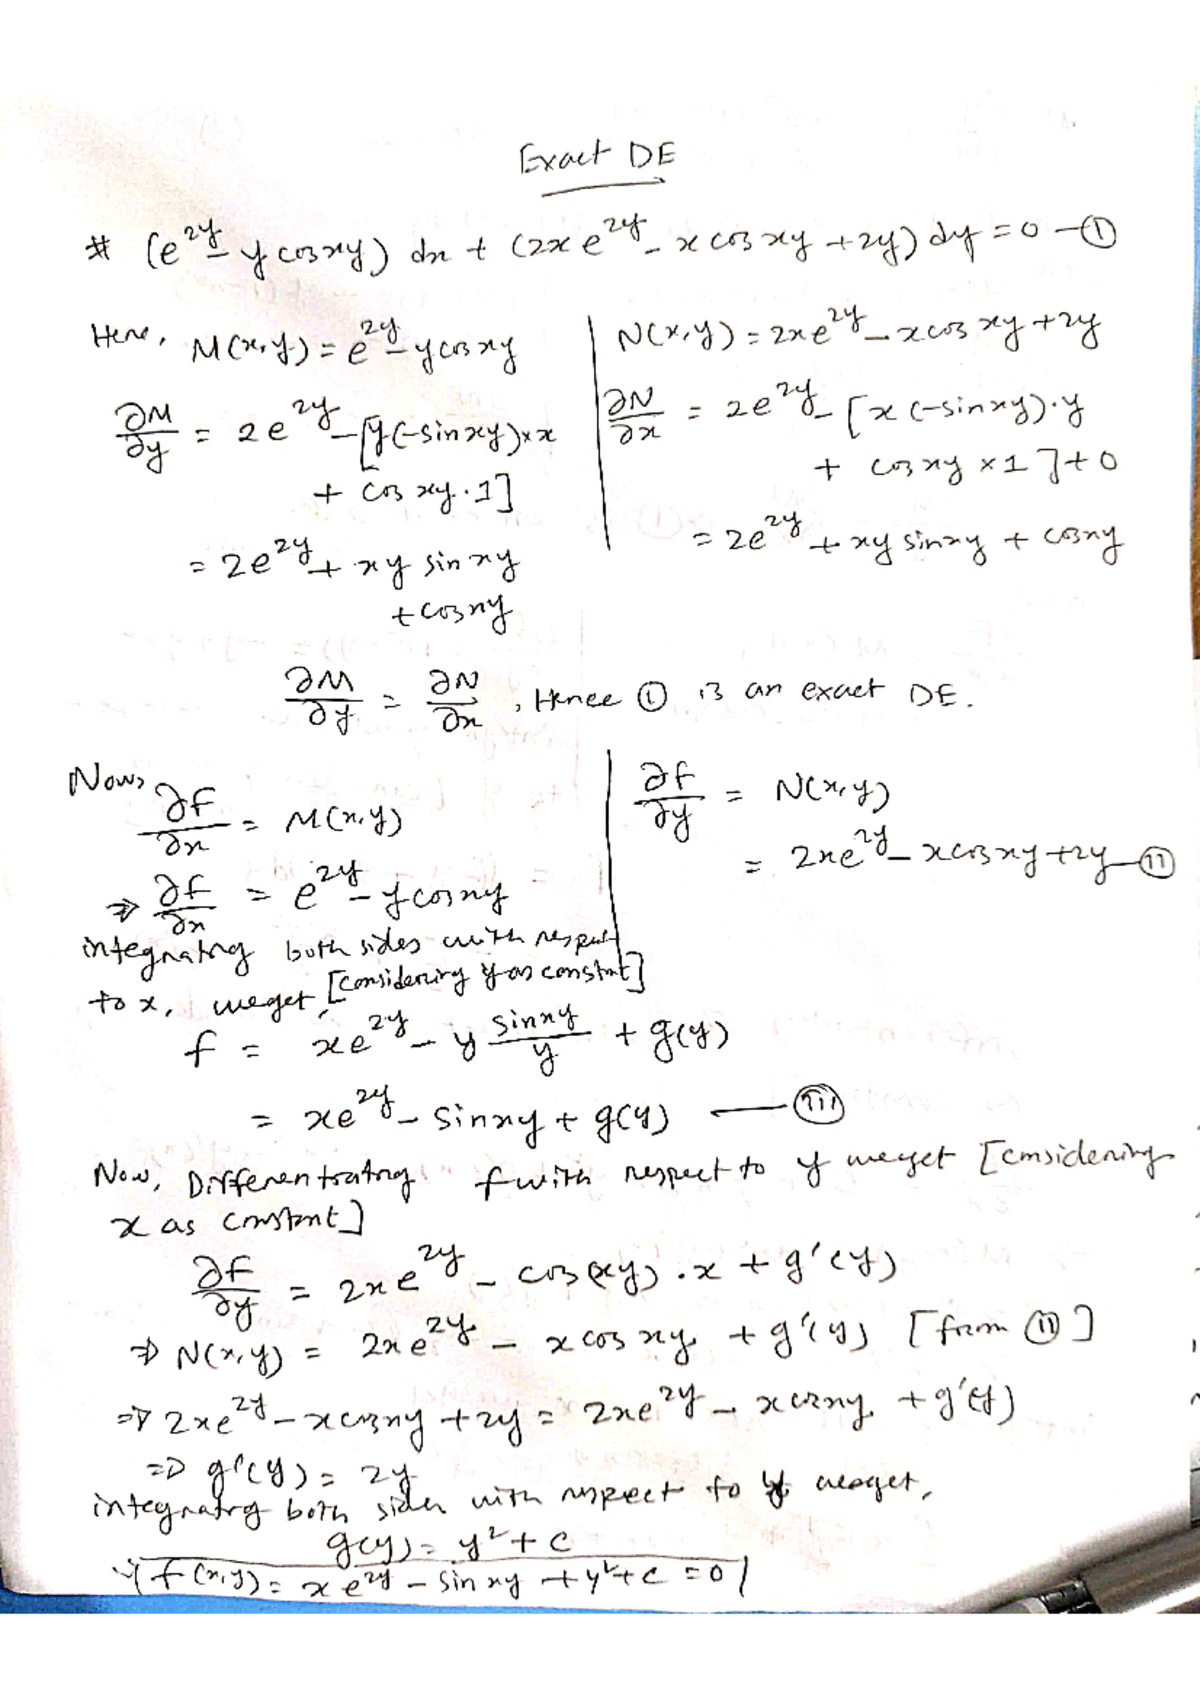 Exact DE
# (e^{2y} - y cos xy) dx + (2x e^{2y} - x cos xy + 2y) dy = 0 — ⓘ
Here, M(x,y) = e^{2y} - y cos xy
∂M/∂y = 2e^{2y} - [y(-sin xy)×x
+ cos xy · 1]
= 2e^{2y} + xy sin xy
+ cos xy
N(x,y) = 2xe^{2y} - x cos xy + 2y
∂N/∂x = 2e^{2y} - [x (-sin xy)·y
+ cos xy × 1] + 0
= 2e^{2y} + xy sin xy + cos xy
∂M/∂y = ∂N/∂x , Hence ⓘ is an exact DE.
Now, ∂f/∂x = M(x,y)
⇒ ∂f/∂x = e^{2y} - y cos xy
∂f/∂y = N(x,y)
= 2xe^{2y} - x cos xy + 2y — (ii)
integrating both sides with respect
to x, we get, [considering y as constant]
f = xe^{2y} - y sin xy/y + g(y)
= xe^{2y} - sin xy + g(y) — (iii)
Now, Differentiating f with respect to y we get [considering
x as constant]
∂f/∂y = 2xe^{2y} - cos(xy) · x + g'(y)
⇒ N(x,y) = 2xe^{2y} - x cos xy + g'(y) [from (ii)]
⇒ 2xe^{2y} - x cos xy + 2y = 2xe^{2y} - x cos xy + g'(y)
⇒ g'(y) = 2y
integrating both sides with respect to y we get,
g(y) = y² + c
∴ f(x,y) = xe^{2y} - sin xy + y² + c = 0